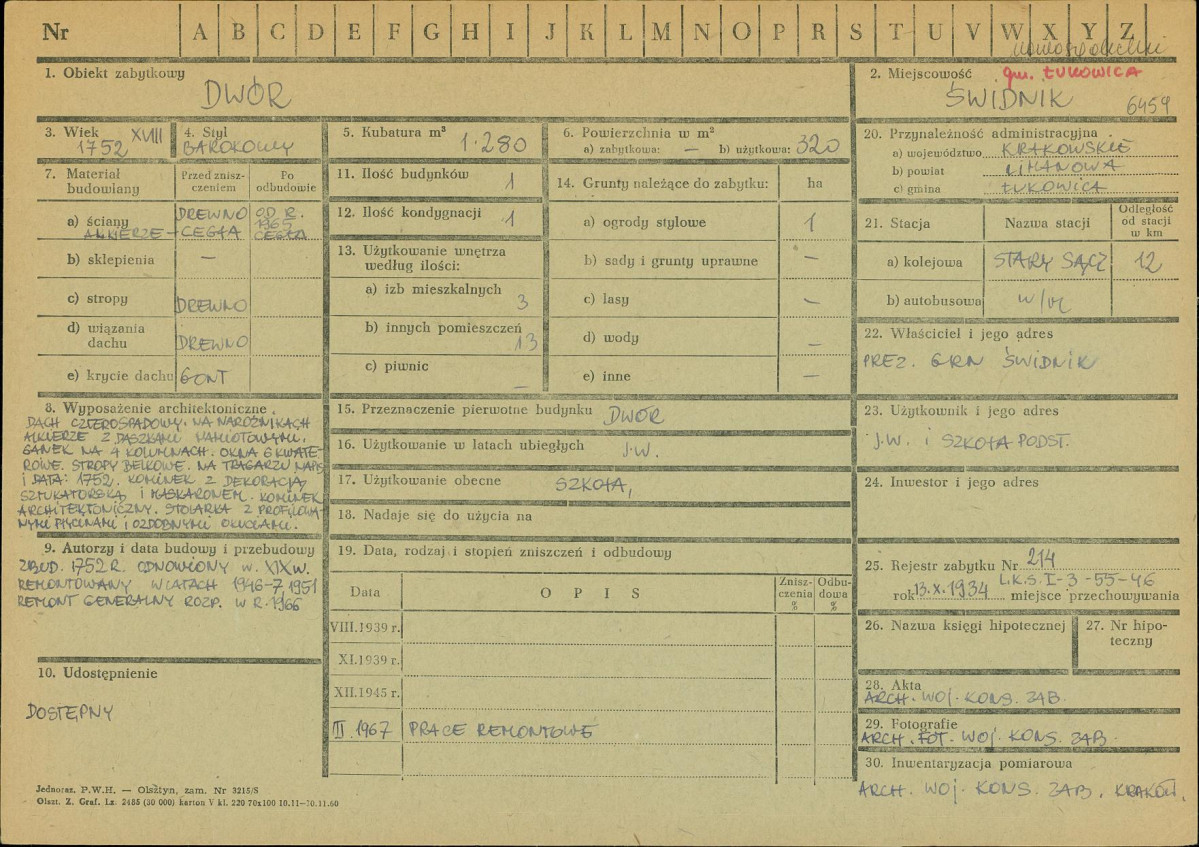 Nr A B C D E F G H I J K L M N O P R S T U V W X Y Z
1. Obiekt zabytkowy
DWÓR
2. Miejscowość gm. ŁUKOWICA
ŚWIDNIK 6459
3. Wiek XVIII
1752
4. Styl
BAROKOWY
5. Kubatura m³ 1.280
6. Powierzchnia w m²
a) zabytkowa: — b) użytkowa: 320
7. Materiał budowlany
Przed zniszczeniem
Po odbudowie
a) ściany DREWNO OD R. 1967
ALKIERZE - CEGŁA CEGŁA
b) sklepienia —
c) stropy DREWNO
d) wiązania dachu DREWNO
e) krycie dachu GONT
8. Wyposażenie architektoniczne
DACH CZTEROSPADOWY. NA NAROŻNIKACH
ALKIERZE Z DASZKAMI NAMIOTOWYMI.
GANEK NA 4 KOLUMNACH. OKNA 6 KWATE-
ROWE. STROPY BELKOWE. NA TRAGARZU NAPIS
I DATA: 1752. KOMINEK Z DEKORACJĄ
SZTUKATORSKĄ I MASKARONEM. KOMINEK
ARCHITEKTONICZNY. STOLARKA Z PROFILOWA-
NYMI PŁYCINAMI I OZDOBNYMI OKUCIAMI.
9. Autorzy i data budowy i przebudowy
ZBUD. 1752 R. ODNOWIONY W. XIX W.
REMONTOWANY W LATACH 1946-7, 1951
REMONT GENERALNY ROZP. W R. 1966
10. Udostępnienie
DOSTĘPNY
11. Ilość budynków 1
12. Ilość kondygnacji 1
13. Użytkowanie wnętrza
według ilości:
a) izb mieszkalnych 3
b) innych pomieszczeń 13
c) piwnic —
14. Grunty należące do zabytku: ha
a) ogrody stylowe 1
b) sady i grunty uprawne —
c) lasy —
d) wody —
e) inne —
15. Przeznaczenie pierwotne budynku DWÓR
16. Użytkowanie w latach ubiegłych J.W.
17. Użytkowanie obecne SZKOŁA,
18. Nadaje się do użycia na
19. Data, rodzaj i stopień zniszczeń i odbudowy
Data OPIS Zniszczenia % Odbudowa %
VIII.1939 r.
XI.1939 r.
XII.1945 r.
III.1967 PRACE REMONTOWE
20. Przynależność administracyjna
a) województwo KRAKOWSKIE
b) powiat LIMANOWA
c) gmina ŁUKOWICA
21. Stacja Nazwa stacji Odległość od stacji w km
a) kolejowa STARY SĄCZ 12
b) autobusowa
22. Właściciel i jego adres
PREZ. GRN ŚWIDNIK
23. Użytkownik i jego adres
J.W. i SZKOŁA PODST.
24. Inwestor i jego adres
25. Rejestr zabytku Nr 214
L.K.S. I-3-55-46
rok 13.X.1934 miejsce przechowywania
26. Nazwa księgi hipotecznej
27. Nr hipoteczny
28. Akta
ARCH. WOJ. KONS. ZAB.
29. Fotografie
ARCH. FOT. WOJ. KONS. ZAB.
30. Inwentaryzacja pomiarowa
ARCH. WOJ. KONS. ZAB. KRAKÓW.
Jednoraz. P.W.H. — Olsztyn, zam. Nr 3215/S
Olszt. Z. Graf. Lz. 2485 (30 000) karton V kl. 220 70x100 10.11—30.11.60